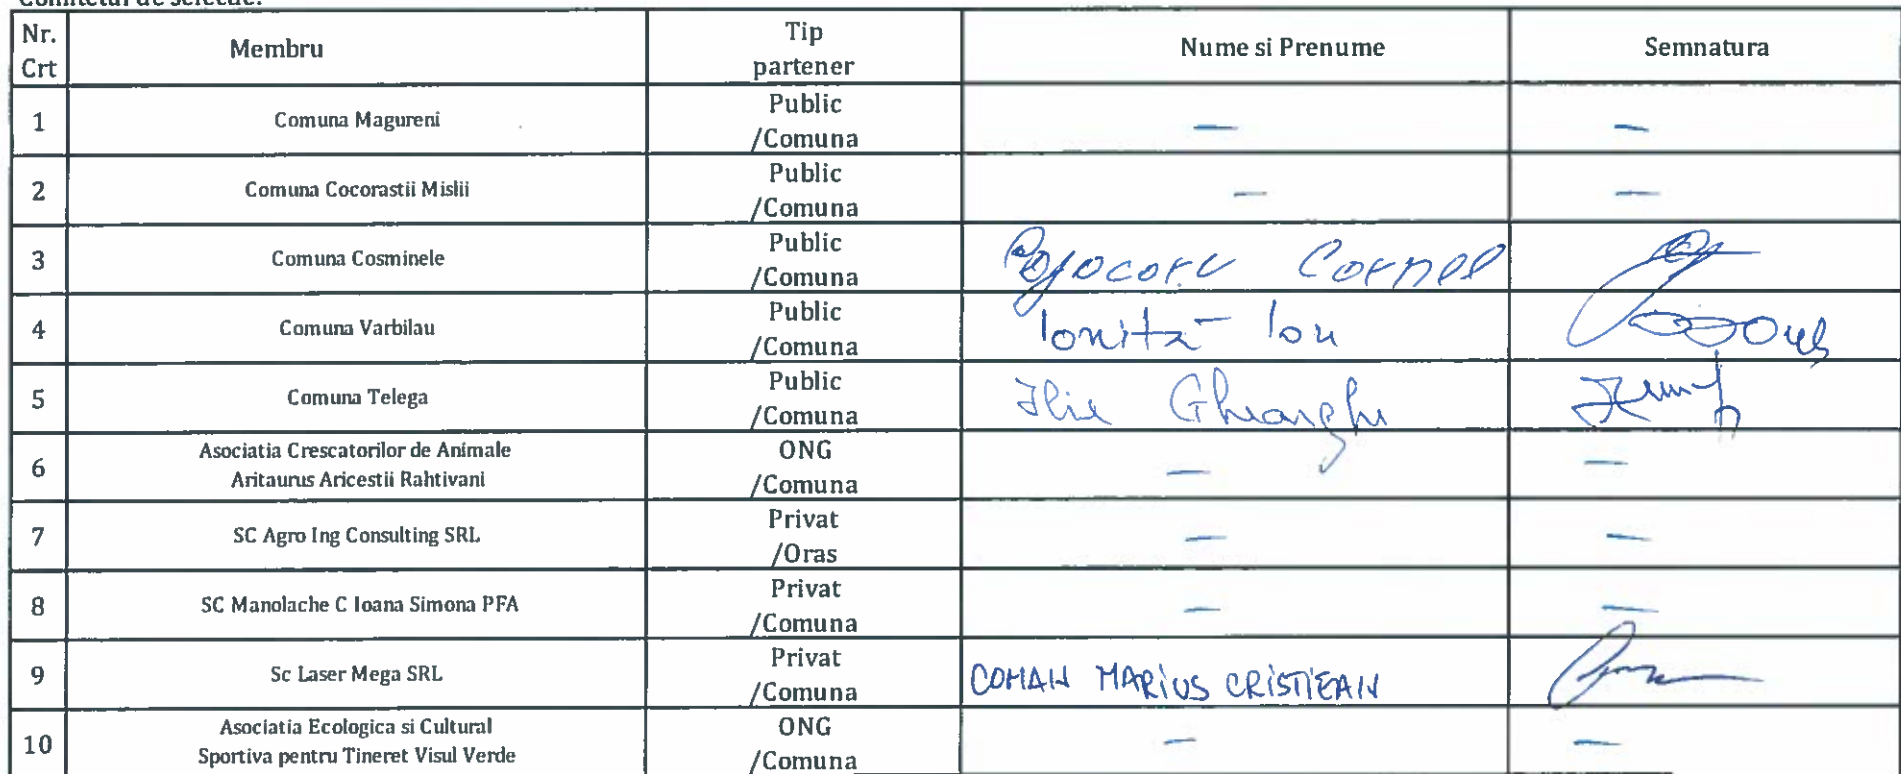 Comitetul de selectie:
Nr. Crt Membru Tip partener Nume si Prenume Semnatura
1 Comuna Magureni Public /Comuna — —
2 Comuna Cocorastii Mislii Public /Comuna — —
3 Comuna Cosminele Public /Comuna Cornel
4 Comuna Varbilau Public /Comuna Ionita Ion
5 Comuna Telega Public /Comuna Ilie Gheorghe
6 Asociatia Crescatorilor de Animale Aritaurus Aricestii Rahtivani ONG /Comuna — —
7 SC Agro Ing Consulting SRL Privat /Oras — —
8 SC Manolache C Ioana Simona PFA Privat /Comuna — —
9 Sc Laser Mega SRL Privat /Comuna COMAN MARIUS CRISTIEAN
10 Asociatia Ecologica si Cultural Sportiva pentru Tineret Visul Verde ONG /Comuna — —